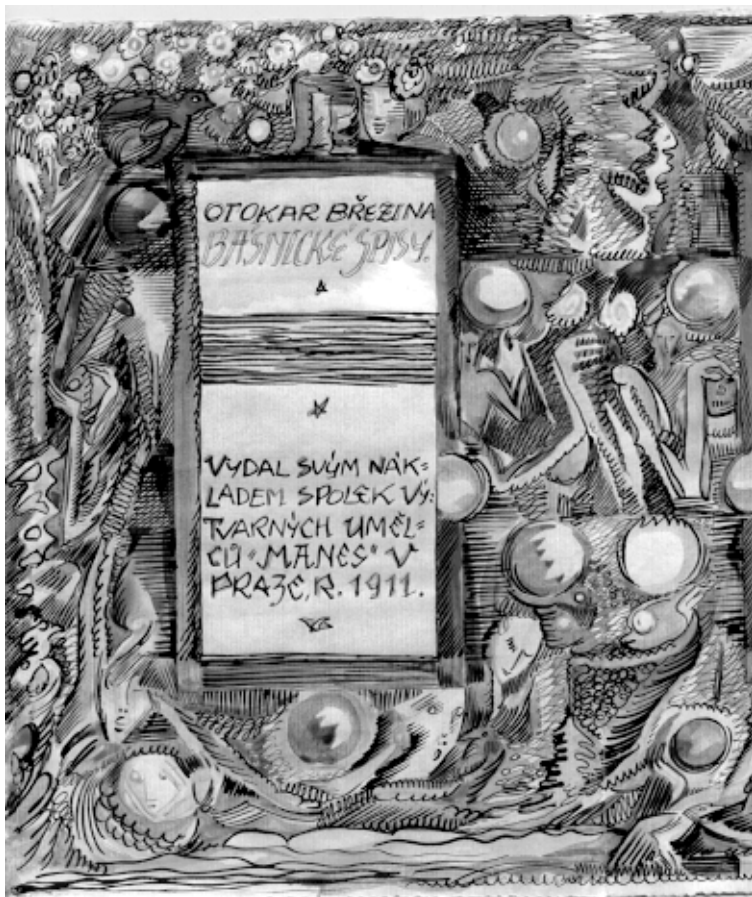 OTOKAR BŘEZINA
BÁSNICKÉ SPISY.
VYDAL SVÝM NÁK-
LADEM SPOLEK VÝ-
TVARNÝCH UMĚL-
CŮ "MANES" V
PRAZE, R. 1911.